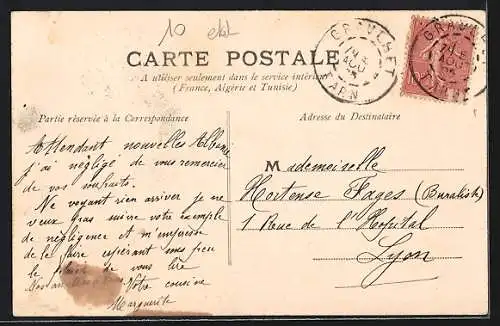 10 
GRAULHET
TARN
GRAULHET
TARN
CARTE POSTALE
A utiliser seulement dans le service intérieur
(France, Algérie et Tunisie)
Partie réservée à la Correspondance
Adresse du Destinataire
Attendant nouvelles Albanie
j'ai négligé de vous remercier
de vos souhaits.
Ne voyant rien arriver je ne
veux pas suivre votre exemple
de négligence et m'empresse
de le faire espérant sous peu
le plaisir de vous lire
Votre cousine
Marguerite
Mademoiselle
Hortense Fages (Buraliste)
1 Rue de l'Hopital
Lyon